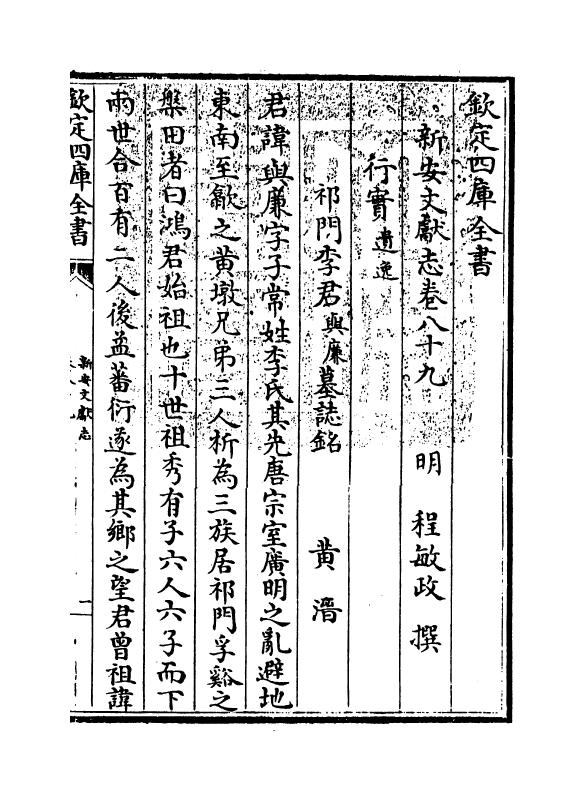 欽定四庫全書
新安文獻志卷八十九
明 程敏政 撰
行實遺逸
祁門李君與廉墓誌銘 黄溍
君諱與廉字子常姓李氏其先唐宗室廣明之亂避地
東南至歙之黄墩兄弟三人析為三族居祁門孚谿之
槃田者曰鴻君始祖也十世祖秀有子六人六子而下
兩世合百有二人後益蕃衍遂為其鄉之望君曾祖諱
欽定四庫全書
新安文獻志
一